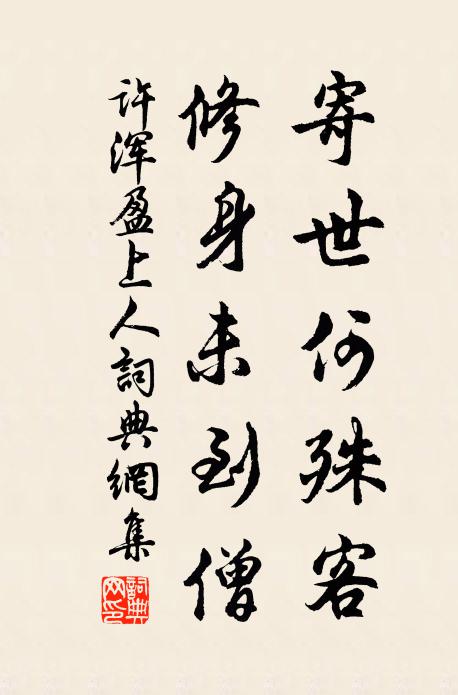 寄世何殊客
修身未到僧
许浑盈上人詞典網集
詞典网印